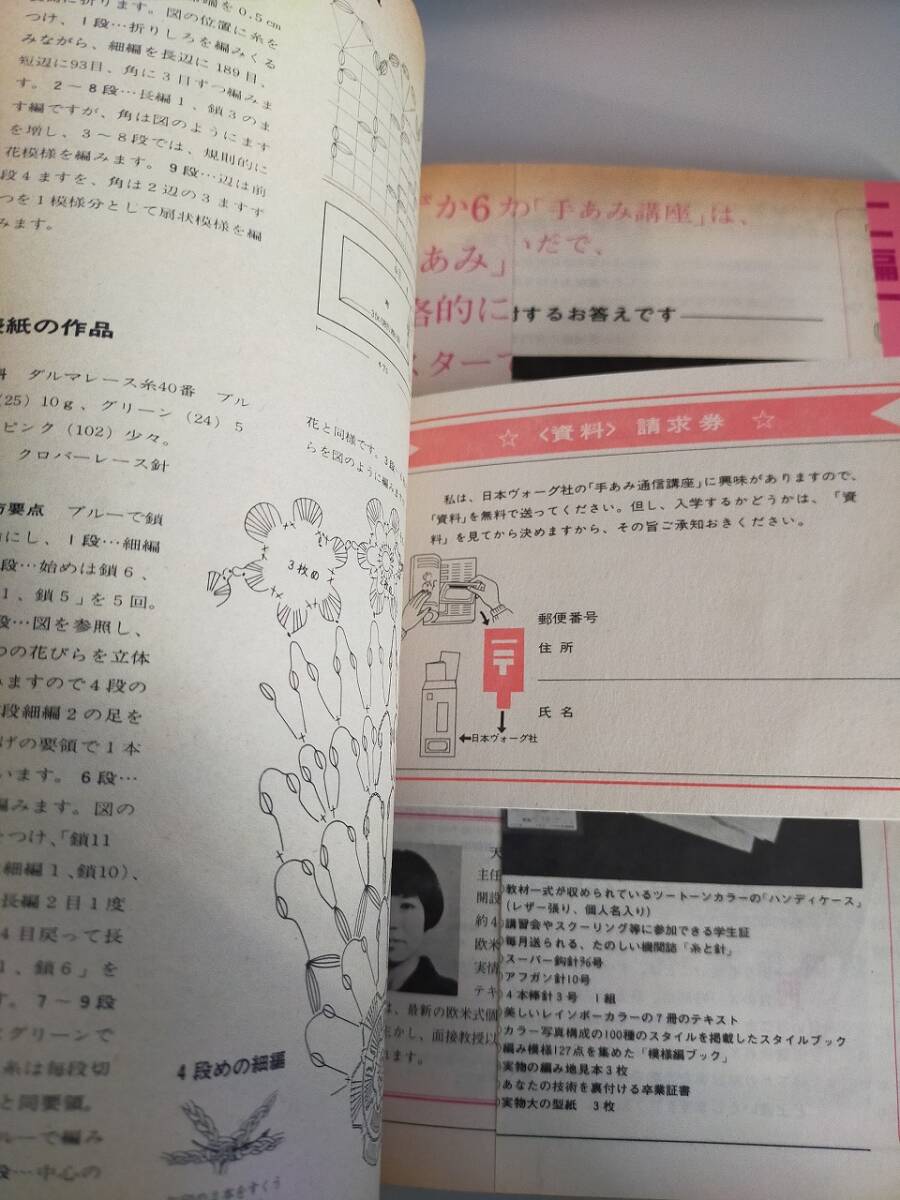 端を0.5cm
側に折ります。図の位置に糸を
つけ、1段…折りしろを編みくる
みながら、細編を長辺に189目、
短辺に93目、角に3目ずつ編みま
す。2〜8段…長編1、鎖3のま
す編ですが、角は図のようにます
を増し、3〜8段では、規則的に
花模様を編みます。9段…辺は前
段4ますを、角は2辺の3ますず
つを1模様分として扇状模様を編
みます。
紙の作品
料 ダルマレース糸40番 ブル
(25) 10g、グリーン (24) 5
ピンク (102) 少々。
クロバーレース針
要点 ブルーで鎖
にし、1段…細編
段…始めは鎖6、
1、鎖5」を5回。
段…図を参照し、
つの花びらを立体
みますので4段の
段細編2の足を
げの要領で1本
います。6段…
編みます。図の
をつけ、「鎖11
細編1、鎖10)、
長編2目1度
4目戻って長
1、鎖6」を
す。7〜9段
とグリーンで
糸は毎段切
と同要領。
ルーで編み
段…中心の
花と同様です。3段
らを図のように編みま
3枚め
4段めの細編
本をすくう
か6カ
「手あみ講座」は、
あみ」
いだで、
格的に
対するお答えです
スター
編
☆〈資料〉請求券☆
私は、日本ヴォーグ社の「手あみ通信講座」に興味がありますので、
「資料」を無料で送ってください。但し、入学するかどうかは、「資
料」を見てから決めますから、その旨ご承知おきください。
郵便番号
住所
〒
氏名
←日本ヴォーグ社
天
主任
開設
約4
欧米
実情
テキ
は、最新の欧米式個
かし、面接教授以
れます。
教材一式が収められているツートーンカラーの「ハンディケース」
(レザー張り、個人名入り)
講習会やスクーリング等に参加できる学生証
毎月送られる、たのしい機関誌「糸と針」
スーパー鈎針5/6号
アフガン針10号
4本棒針3号 1組
美しいレインボーカラーの7冊のテキスト
カラー写真構成の100種のスタイルを掲載したスタイルブック
編み模様127点を集めた「模様編ブック」
実物の編み地見本3枚
あなたの技術を裏付ける卒業証書
実物大の型紙 3枚